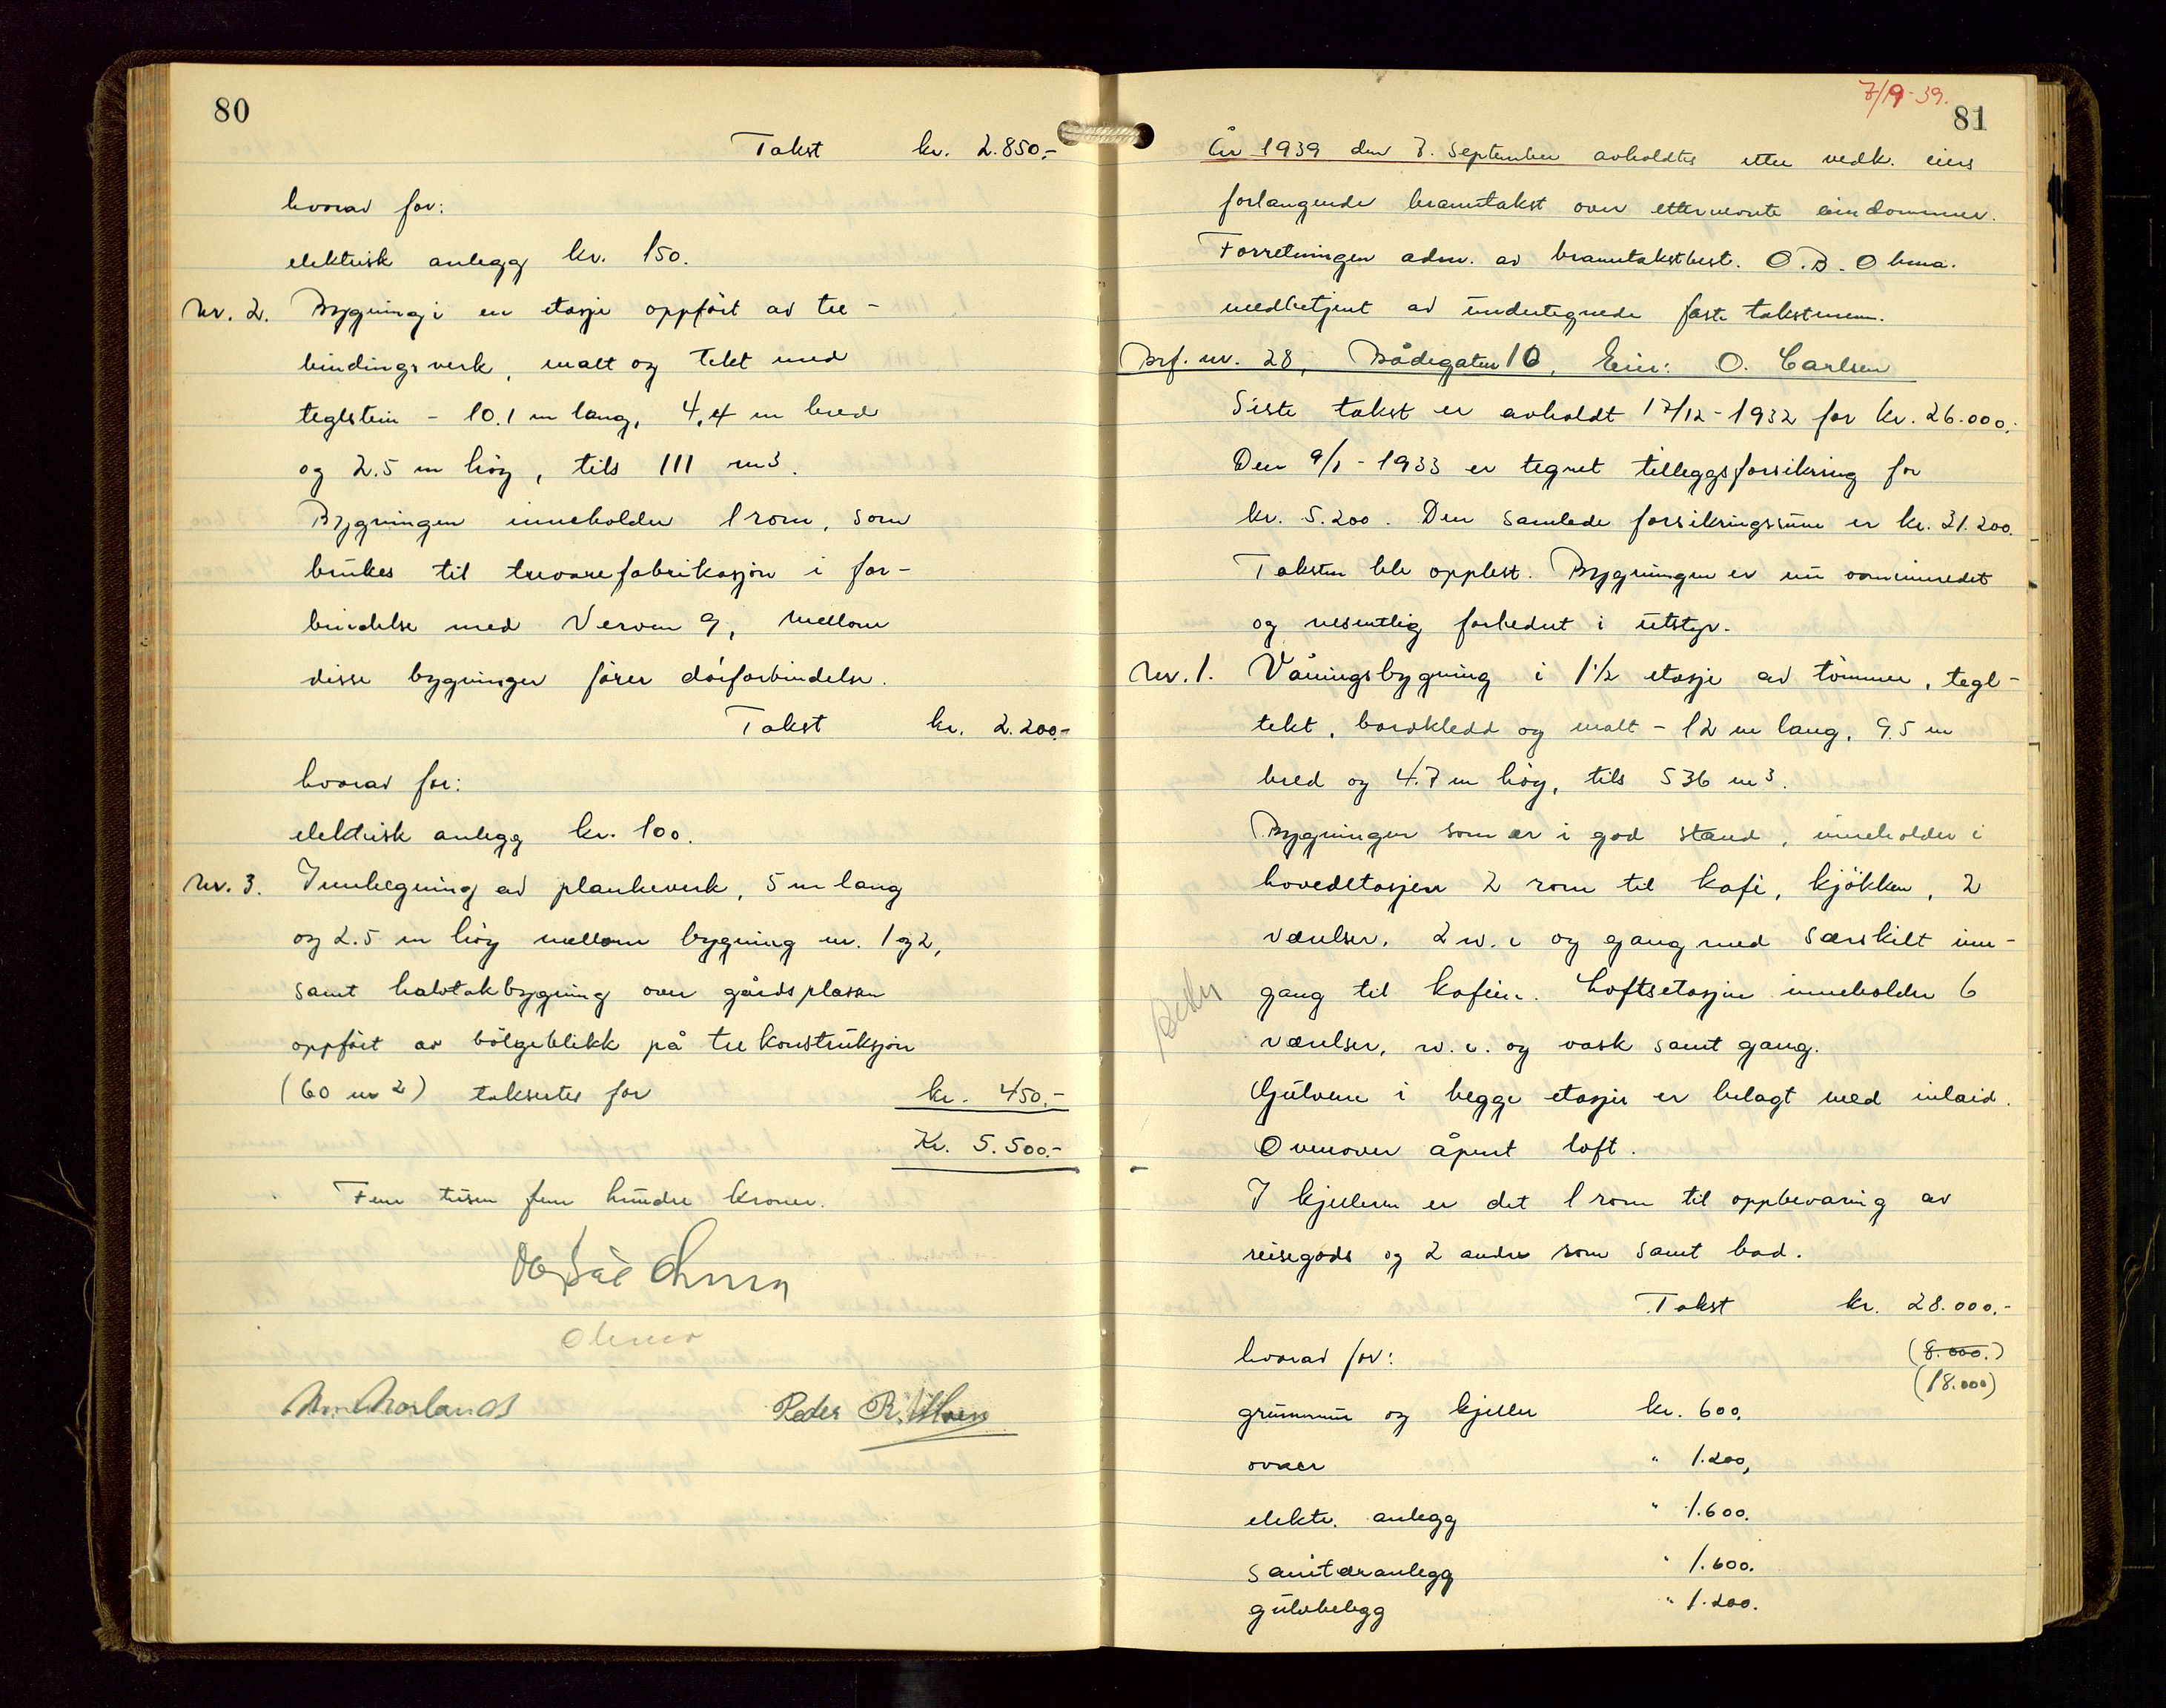 80
Takst kr. 2.850.-
hvorav for:
elektrisk anlegg kr. 150.
Nr. 2. Bygning i en etasje oppført av tre-
bindingsverk, malt og tekt med
teglstein - 10.1 m lang, 4,4 m bred
og 2.5 m høy, tils 111 m3.
Bygningen inneholder 1 rom, som
brukes til trevarefabrikasjon i for-
bindelse med Verven 9, mellom
disse bygninger fører dørforbindelse.
Takst kr. 2.200.-
hvorav for:
elektrisk anlegg kr. 100.
Nr. 3. Innhegning av plankeverk, 5 m lang
og 2.5 m høy mellom bygning nr. 1 og 2,
samt halvtakbygning over gårdsplassen
oppført av bølgeblikk på trekonstruksjon
(60 m2) takseres for kr. 450.-
Kr. 5.500.-
Fem tusen fem hundre kroner.
Ohma
Peder R.
7/9-39.
81
År 1939 den 7. september avholdtes etter vedk. eiers
forlangende branntakst over etternevnte eiendommer.
Forretningen adm. av branntakstbest. O.B. Ohma.
medbetjent av undertegnede faste takstmenn.
Brf. nr. 28, Bådegaten 10, Eier: O. Carlsen
Siste takst er avholdt 17/12-1932 for kr. 26.000.-
Den 9/1-1933 er tegnet tilleggsforsikring for
kr. 5.200. Den samlede forsikringssum er kr. 31.200.
Taksten ble opplest. Bygningen er nu ominnredet
og vesentlig forbedret i utstyr.
Nr. 1. Våningsbygning i 1½ etasje av tømmer, tegl-
tekt, bordkledd og malt - 12 m lang, 9.5 m
bred og 4.7 m høy, tils 536 m3.
Bygningen som er i god stand, inneholder i
hovedetasjen 2 rom til kafè, kjøkken, 2
værelser, 2 w.c og gang med særskilt inn-
gang til kafeen. Loftsetasjen inneholder 6
værelser, w.c. og vask samt gang.
Gulvene i begge etasjer er belagt med inlaid.
Ovenover åpent loft.
I kjelleren er det 1 rom til oppbevaring av
reisegods og 2 andre rom samt bad.
Takst kr. 28.000.-
(8.000.)
hvorav for:
(18.000)
grunnmur og kjeller kr. 600.
ovner " 1.200,
elektr. anlegg " 1.600.
sanitæranlegg " 1.600.
gulvbelegg " 1.200.